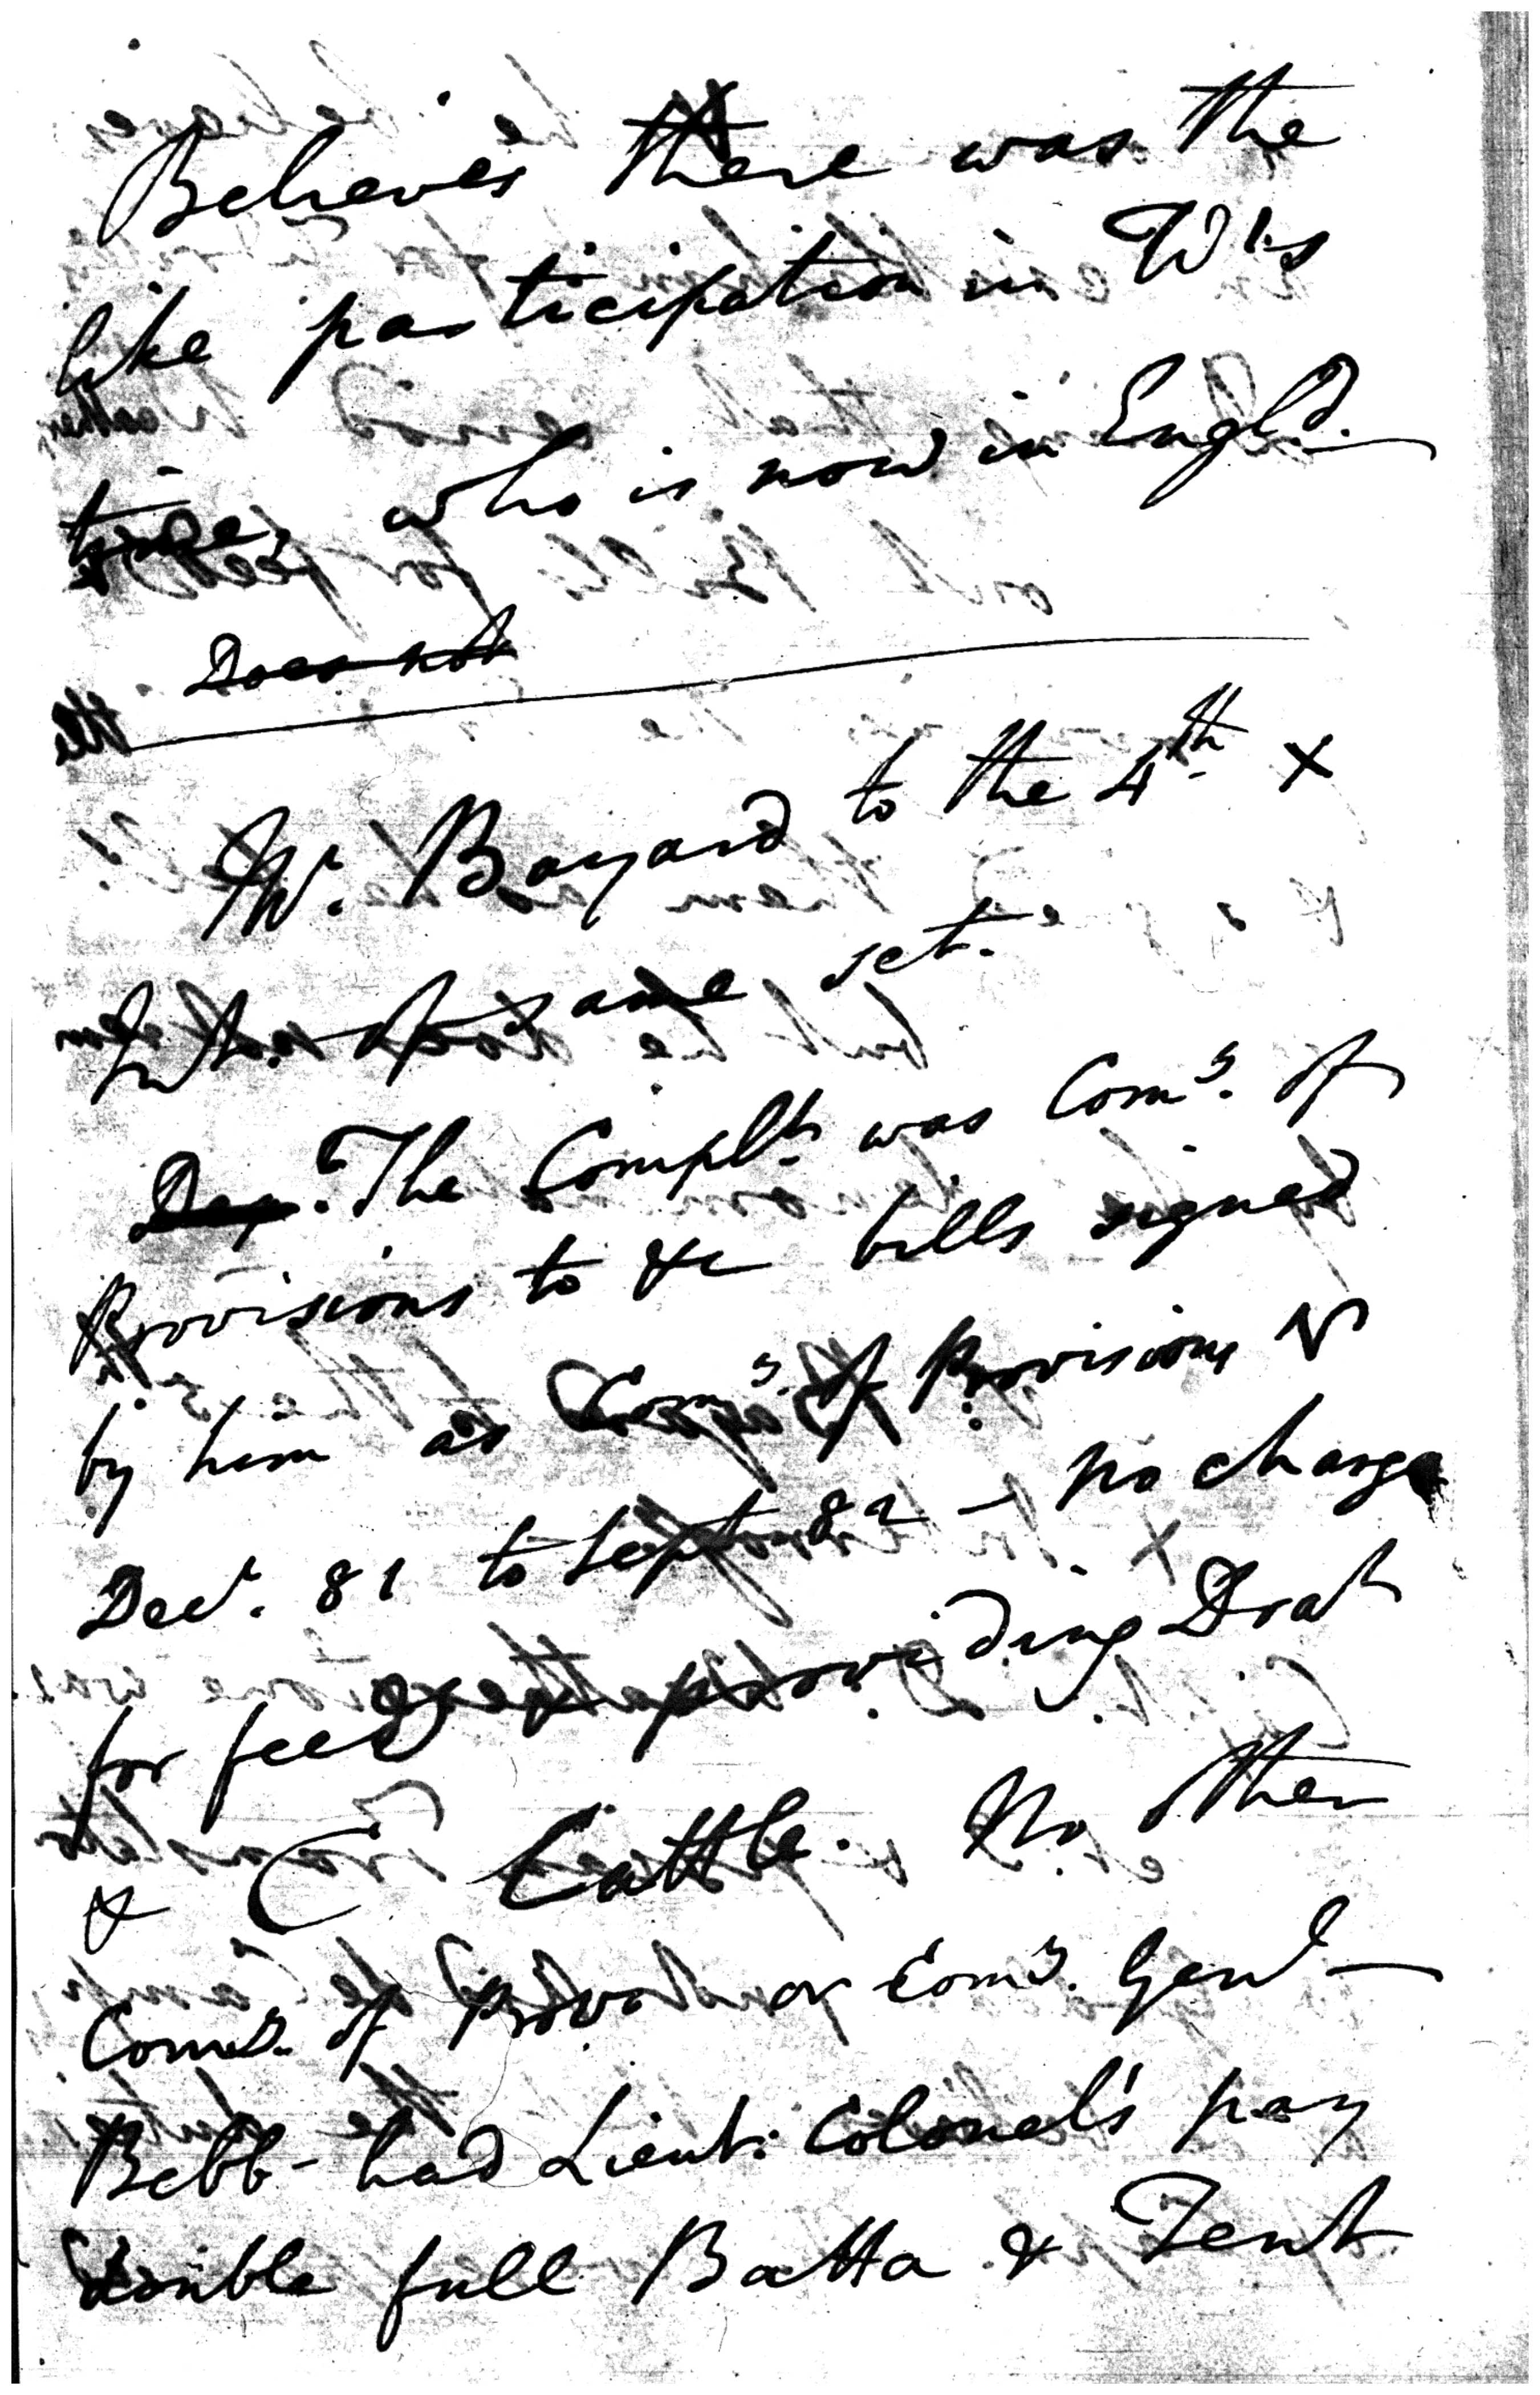 Believes there was the
like participation in W's
time, who is now in Engld.
Does not
W. Bayard to the 4th X
Int. of same set.
Dep. The Complt. was Comy. of
Provisions to &c bills signed
by him as Comy. of Provisions
Decr. 81 to Septr. 82 – no charge
for feed providing Drat
& C Cattle. No other
Comy. of Provns or Comy. Genl –
Bebb – had Lieut: Colonel's pay
double full Batta & Tent